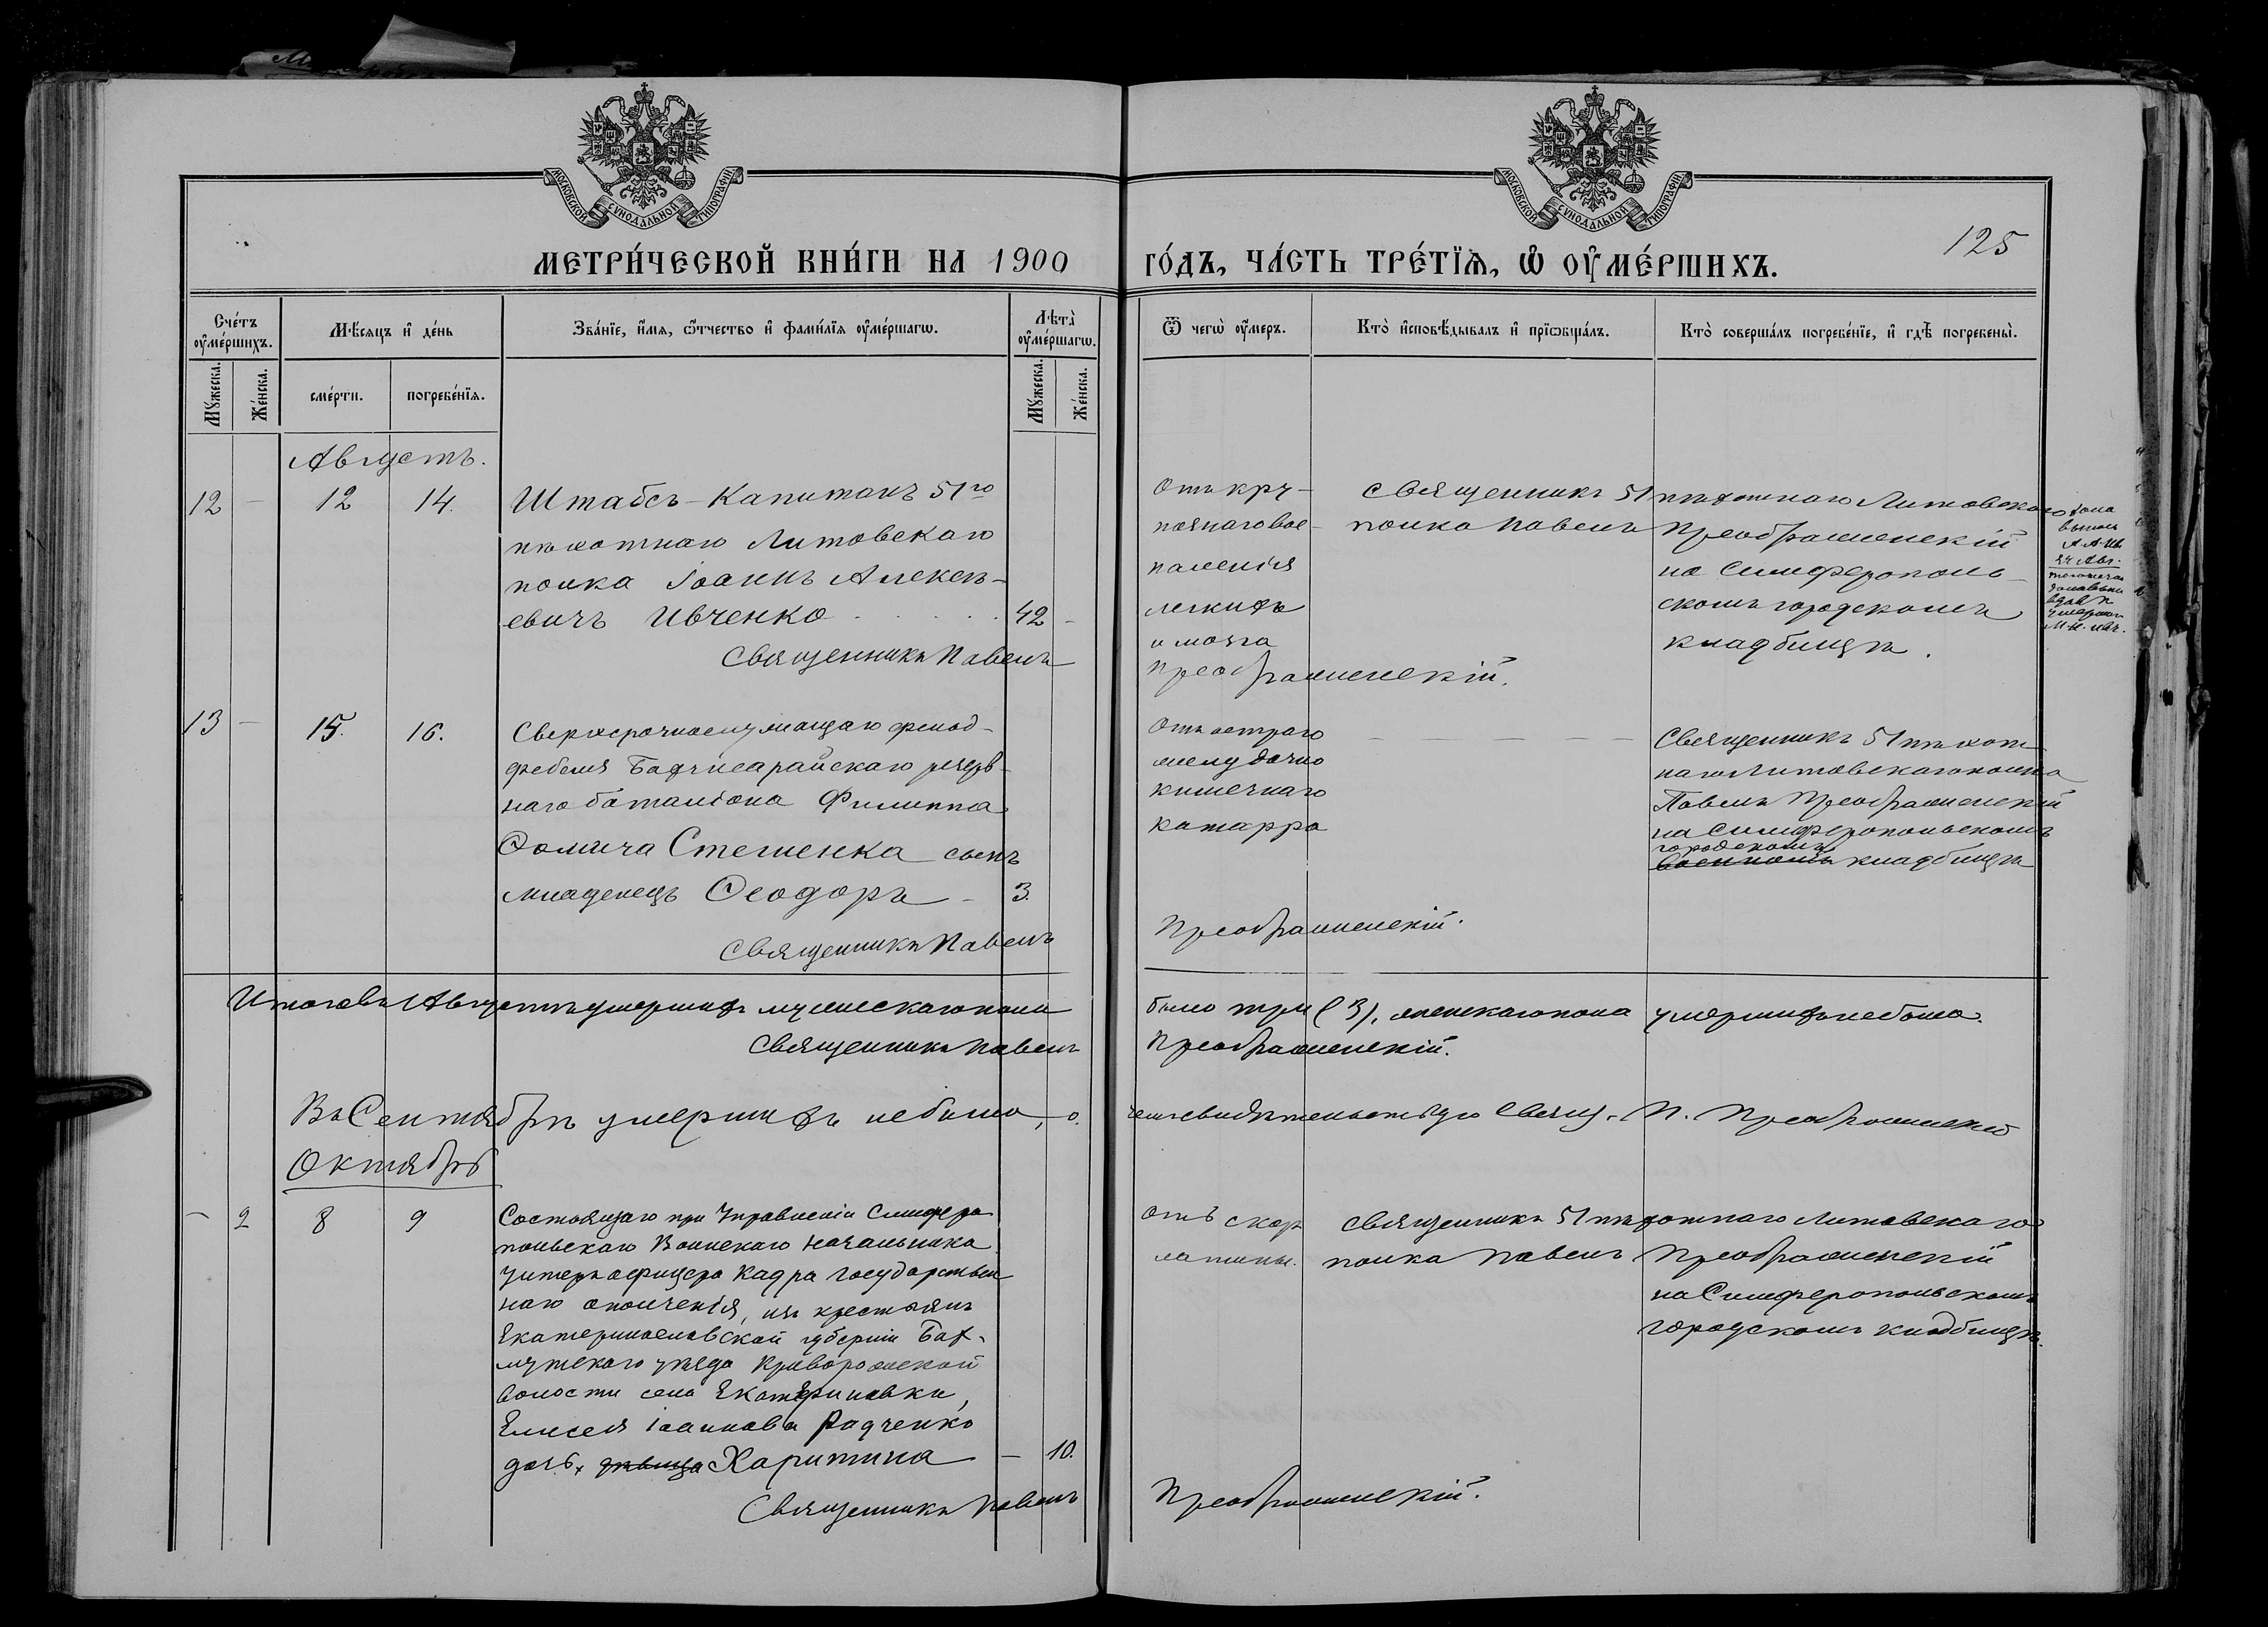 МОСКОВСКОЙ СѴНОДАЛЬНОЙ ТИПОГРАФІИ
МОСКОВСКОЙ СѴНОДАЛЬНОЙ ТИПОГРАФІИ
125
МЕТРИ́ЧЕСКОЙ КНИ́ГИ НА 1900
ГО́ДЪ, ЧА́СТЬ ТРЕ́ТЇѦ, Ѡ҆ ОУ҆МЕ́РШИХЪ.
Сче́тъ оу҆ме́ршихъ.
Мѣ́сяцъ и҆ де́нь
Зва́нїе, и҆́мя, ѻ҆́тчество и҆ фами́лїя оу҆ме́ршагѡ.
Лѣ́та̀ оу҆ме́ршагѡ.
Ѿ чегѡ̀ оу҆́меръ.
Кто̀ и҆сповѣ́дывалъ и҆ прїѡбща́лъ.
Кто̀ соверша́лъ погребе́нїе, и҆ гдѣ̀ погребены̀.
Мꙋ́жеска.
Же́нска.
сме́рти.
погребе́нїя.
Мꙋ́жеска.
Же́нска.
Августъ.
12 – 12 14.
Штабсъ-Капитанъ 51го
пѣхотнаго Литовскаго
полка Іоаннъ Алексѣ-
евичъ Ивченко . . . . . 42 –
Священникъ Павелъ
Отъ кру-
познаго вос-
паленія
легкихъ
и мозга
Преображенскій.
Священникъ 51 пѣхотнаго Литовскаго
полка Павелъ Преображенскій
на Симферополь-
скомъ городскомъ
кладбищѣ.
13 – 15. 16.
Сверхсрочнослужащаго фельд-
фебеля Бахчисарайскаго резерв-
наго баталіона Филиппа
Ѳомича Стешенка сынъ
младенецъ Ѳеодоръ – 3.
Священникъ Павелъ
Отъ остраго
желудочно
кишечнаго
катарра
Преображенскій.
Священникъ 51 пѣхот-
наго Литовскаго полка
Павелъ Преображенскій
на Симферопольскомъ
городскомъ
военномъ кладбищѣ
Итого въ Августѣ умершихъ мужескаго пола
было три (3), женскаго пола умершихъ не было.
Священникъ Павелъ
Преображенскій.
Въ Сентябрѣ умершихъ не было, о
чемъ свидѣтельствую Свящ. П. Преображенскій
Октябрь
– 2 8 9
Состоящаго при Управленіи Симферо
польскаго Воинскаго Начальника
Унтеръ офицера Кадра Государствен
наго ополченія, изъ крестьянъ
Екатеринославской губерніи Бах-
мутскаго уѣзда Криворожской
волости села Екатериновки,
Елисея Іоаннова Радченко
дочь, дѣвица Харитина – 10.
Священникъ Павелъ
Отъ скар
латины.
Преображенскій.
Священникъ 51 пѣхотнаго Литовскаго
полка Павелъ Преображенскій
на Симферопольскомъ
городскомъ кладбищѣ.